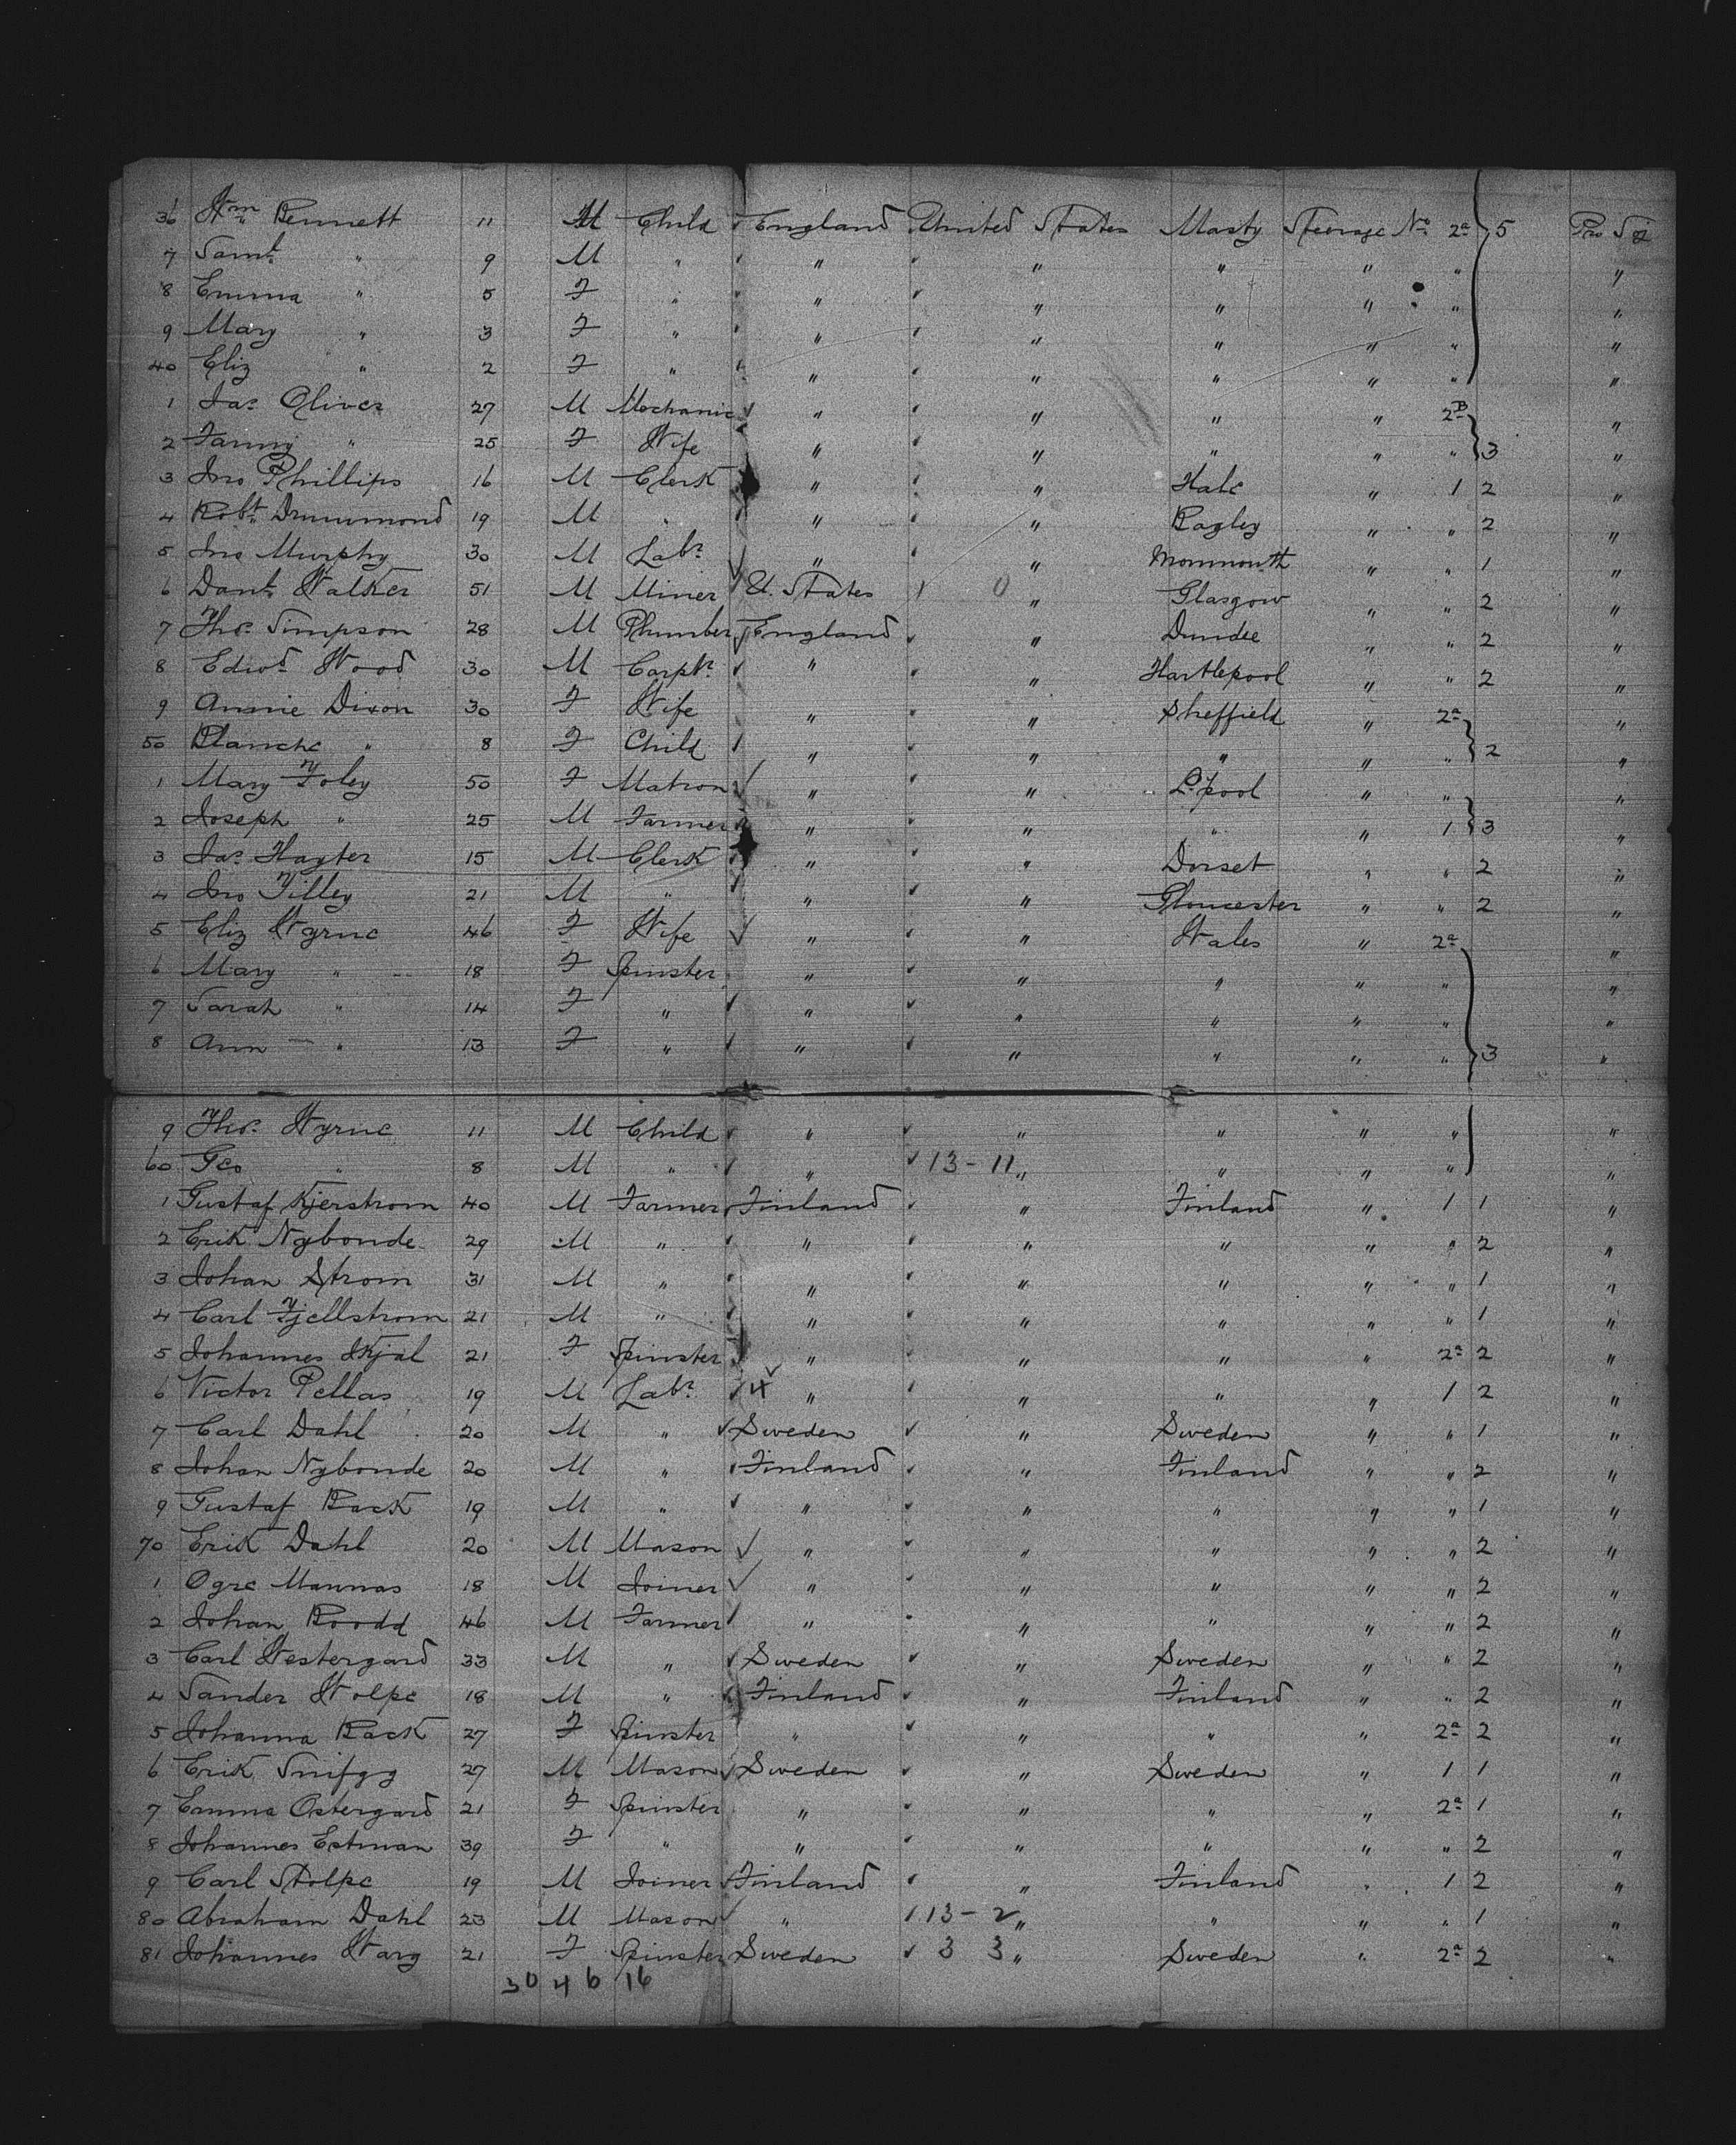 36 Wm Bennett 11 M Child England United States Masty Steerage No 2a 5 Pro Soj
7 Saml " 9 M " " " " " " "
8 Emma " 5 F " " " " " " "
9 Mary " 3 F " " " " " " "
40 Eliz " 2 F " " " " " " "
1 Jas Oliver 27 M Mechanic " " " " 2B "
2 Fanny " 25 F Wife " " " " " 3 "
3 Jno Phillips 16 M Clerk " " Hale " 1 2 "
4 Robt Drummond 19 M " " " Bagley " " 2 "
5 Jno Murphy 30 M Labr " " Monmouth " " 1 "
6 Danl Walker 51 M Miner U. States 0 " Glasgow " " 2 "
7 Thos Simpson 28 M Plumber England " Dundee " " 2 "
8 Edwd Wood 30 M Carptr " " Hartlepool " " 2 "
9 Annie Dixon 30 F Wife " " Sheffield " 2a "
50 Blanche " 8 F Child " " " " " 2 "
1 Mary Foley 50 F Matron " " L'pool " " "
2 Joseph " 25 M Farmer " " " " 1 3 "
3 Jas Hayter 15 M Clerk " " Dorset " " 2 "
4 Jno Tilley 21 M " " " Gloucester " " 2 "
5 Eliz Wyrne 46 F Wife " " Wales " 2a "
6 Mary " 18 F Spinster " " " " " "
7 Sarah " 14 F " " " " " " "
8 Ann " 13 F " " " " " " 3 "
9 Thos Wyrne 11 M Child " " " " " "
60 Geo " 8 M " " 13-11 " " " " "
1 Gustaf Kjerstrom 40 M Farmer Finland " Finland " 1 1 "
2 Erik Nybonde 29 M " " " " " " 2 "
3 Johan Strom 31 M " " " " " " 1 "
4 Carl Fjellstrom 21 M " " " " " " 1 "
5 Johannes Skjal 21 F Spinster " " " " 2a 2 "
6 Victor Pellas 19 M Labr 4 " " " " 1 2 "
7 Carl Dahl 20 M " Sweden " Sweden " " 1 "
8 Johan Nybonde 20 M " Finland " Finland " " 2 "
9 Gustaf Back 19 M " " " " " " 1 "
70 Erik Dahl 20 M Mason " " " " " 2 "
1 Ogre Mannas 18 M Joiner " " " " " 2 "
2 Johan Roodd 46 M Farmer " " " " " 2 "
3 Carl Westergard 33 M " Sweden " Sweden " " 2 "
4 Sander Stolpe 18 M " Finland " Finland " " 2 "
5 Johanna Back 27 F Spinster " " " " 2a 2 "
6 Erik 27 M Mason Sweden " Sweden " 1 1 "
7 Emma Ostergard 21 F Spinster " " " " 2a 1 "
8 Johannes Estman 39 F " " " " " " 2 "
9 Carl Stolpe 19 M Joiner Finland " Finland " 1 2 "
80 Abraham Dahl 23 M Mason " 13-2 " " " " 1 "
81 Johannes Warg 21 F Spinster Sweden 3 3 " Sweden " 2a 2 "
30 46 16